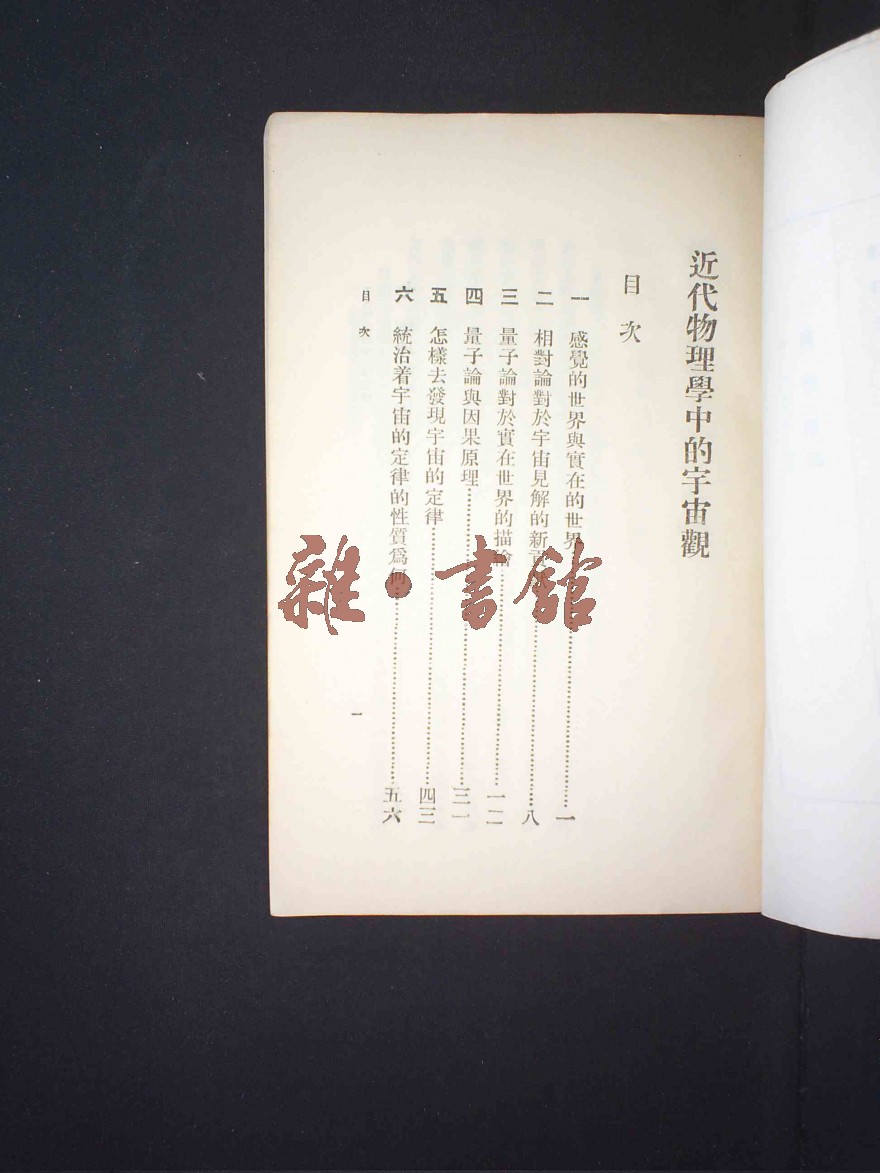 近代物理學中的宇宙觀
目次
一 感覺的世界與實在的世界……一
二 相對論對於宇宙見解的新……八
三 量子論對於實在世界的描繪……一二
四 量子論與因果原理……三一
五 怎樣去發現宇宙的定律……四三
六 統治着宇宙的定律的性質爲何……五六
目次
一
雜·書館